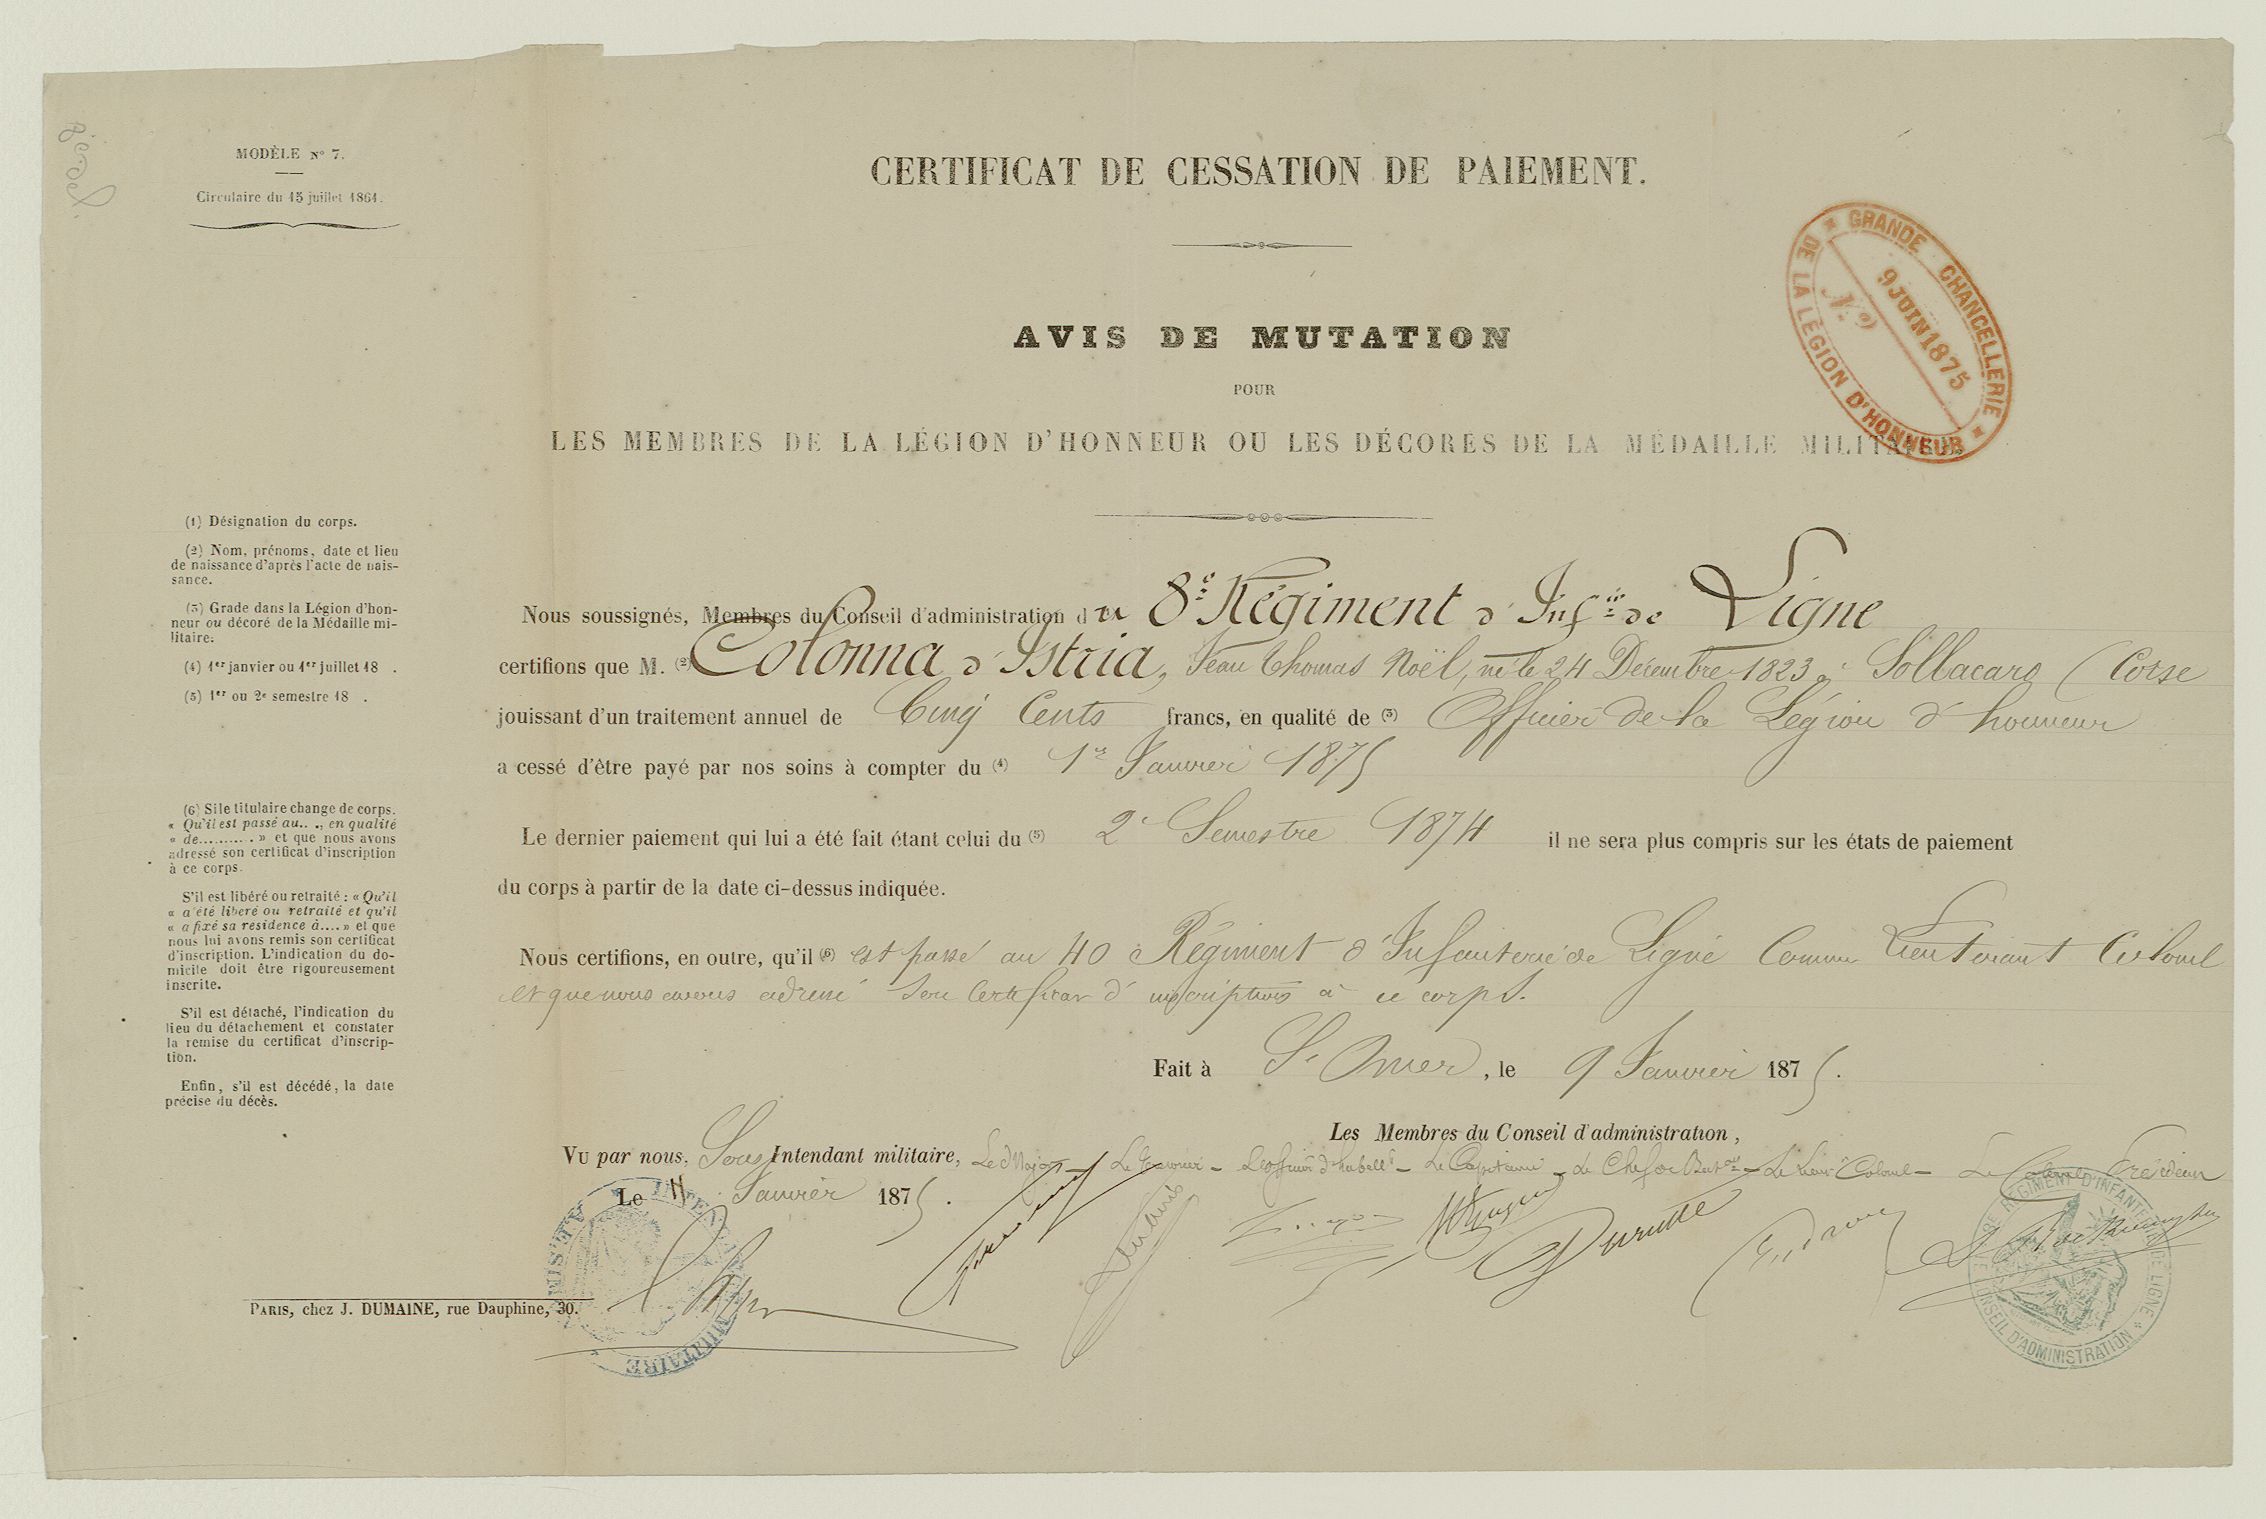 MODÈLE N° 7.
Circulaire du 15 juillet 1861.
CERTIFICAT DE CESSATION DE PAIEMENT.
GRANDE CHANCELLERIE
DE LA LÉGION D'HONNEUR
9 JUIN 1875
N.º
AVIS DE MUTATION
POUR
LES MEMBRES DE LA LÉGION D'HONNEUR OU LES DÉCORÉS DE LA MÉDAILLE MILITAIRE
(1) Désignation du corps.
(2) Nom, prénoms, date et lieu
de naissance d'après l'acte de nais-
sance.
(3) Grade dans la Légion d'hon-
neur ou décoré de la Médaille mi-
litaire.
(4) 1er janvier ou 1er juillet 18 .
(5) 1er ou 2e semestre 18 .
(6) Si le titulaire change de corps.
« Qu'il est passé au..., en qualité
« de.......... » et que nous avons
adressé son certificat d'inscription
à ce corps.
S'il est libéré ou retraité : « Qu'il
« a été libéré ou retraité et qu'il
« a fixé sa résidence à.... » et que
nous lui avons remis son certificat
d'inscription. L'indication du do-
micile doit être rigoureusement
inscrite.
S'il est détaché, l'indication du
lieu du détachement et constater
la remise du certificat d'inscrip-
tion.
Enfin, s'il est décédé, la date
précise du décès.
Nous soussignés, Membres du Conseil d'administration du 8e Régiment d'Infie de Ligne
certifions que M. (2) Colonna d'Istria, Jean Thomas Noël, né le 24 Décembre 1823 à Sollacaro (Corse
jouissant d'un traitement annuel de Cinq Cents francs, en qualité de (3) Officier de la Légion d'honneur
a cessé d'être payé par nos soins à compter du (4) 1er Janvier 1875
Le dernier paiement qui lui a été fait étant celui du (5) 2e Semestre 1874 il ne sera plus compris sur les états de paiement
du corps à partir de la date ci-dessus indiquée.
Nous certifions, en outre, qu'il (6) est passé au 40e Régiment d'Infanterie de Ligne Comme Lieutenant Colonel
et que nous avons adressé son Certificat d'inscription à ce corps.
Fait à St Omer, le 9 Janvier 1875.
Les Membres du Conseil d'administration,
Vu par nous, Sous Intendant militaire, Le Major - Le Trésorier - L'officier d'habellt - Le Capitaine - Le Chef de Baton - Le Lieut Colonel - Le Colonel Président
Le 11 Janvier 1875.
INTENDANCE MILITAIRE
RÉGIMENT D'INFANTERIE DE LIGNE
CONSEIL D'ADMINISTRATION
PARIS, chez J. DUMAINE, rue Dauphine, 30.